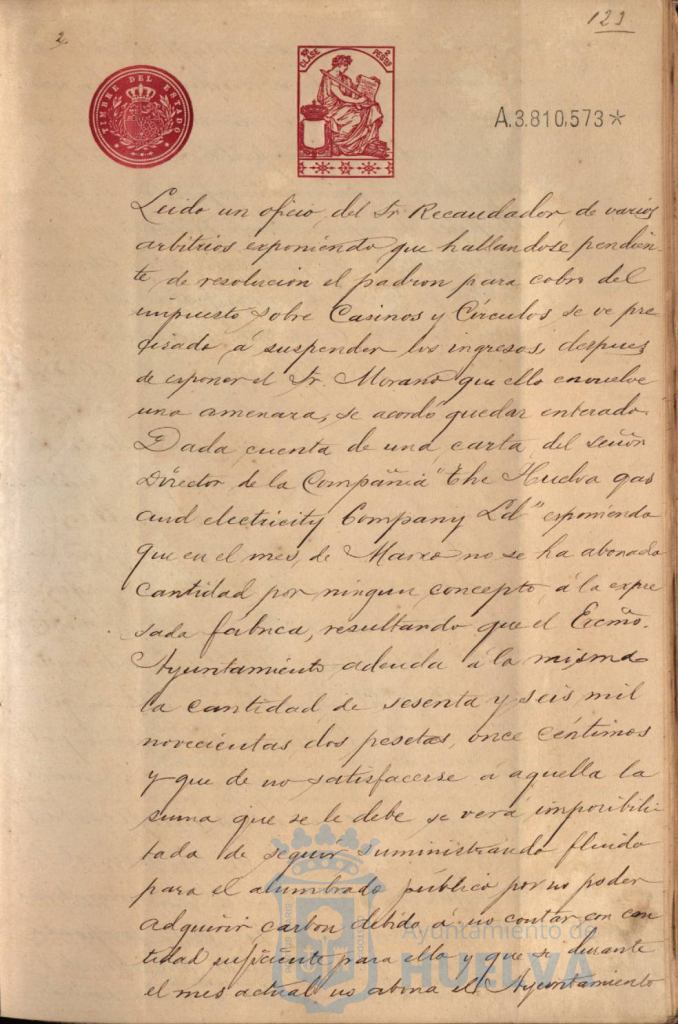 2
123
TIMBRE DEL ESTADO
CLASE 2 PESETAS
A.3.810,573*
Leido un oficio del Sr Recaudador de varios
arbitrios exponiendo que hallandose pendien-
te de resolucion el padron para cobro del
impuesto sobre Casinos y Círculos se ve pre
cisado á suspender los ingresos, despues
de esponer el Sr. Morano que ello envuelve
una amenaza, se acordó quedar enterado.
Dada cuenta de una carta del señor
Director de la Compañia "The Huelva gas
and electricity Company Ld" esponiendo
que en el mes de Marzo no se ha abonado
cantidad por ningun concepto á la expre
sada fábrica, resultando que el Excmo.
Ayuntamiento adeuda á la misma
la cantidad de sesenta y seis mil
novecientas dos pesetas, once céntimos
y que de no satisfacerse á aquella la
suma que se le debe se verá imposibili
tada de seguir suministrando fluido
para el alumbrado público por no poder
adquirir carbon debido á no contar con can
tidad suficiente para ello y que si durante
el mes actual no abona el Ayuntamiento
Ayuntamiento de
HUELVA